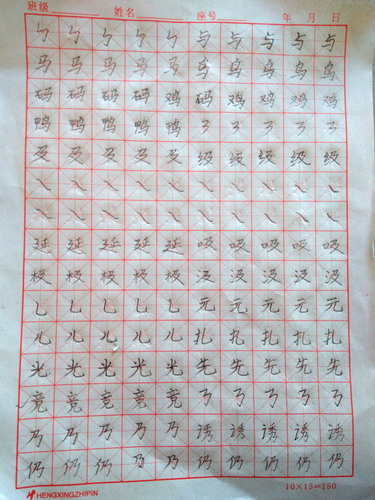 班级 姓名 座号 年 月 日
与 与 与 与 与
马 马 马 马 马 乌 乌 乌 乌 乌
码 码 码 码 鸡 码 鸡 鸡 鸡 鸡
鸭 鸭 鸭 鸭 鸭
及 及 及 及 及 级 级 级 级 级
㇏ ㇏ ㇏ ㇏ ㇏ ㇏ ㇏ ㇏ ㇏ ㇏
㇏ ㇏ ㇏ ㇏ ㇏ ㇏ ㇏ ㇏ ㇏ ㇏
延 延 延 延 延 吸 吸 吸 吸 吸
极 极 极 极 极 汲 汲 汲 汲 汲
乚 乚 乚 乚 乚 元 元 元 元 元
儿 儿 儿 儿 儿 扎 扎 扎 扎 扎
光 光 光 光 光 先 先 先 先 先
竞 竞 竞 竞 竞
乃 乃 乃 乃 乃 诱 诱 诱 诱 诱
仍 仍 仍 乃 乃 仍 仍 仍 仍 仍
HENGXINGZHIPIN 10×15=150